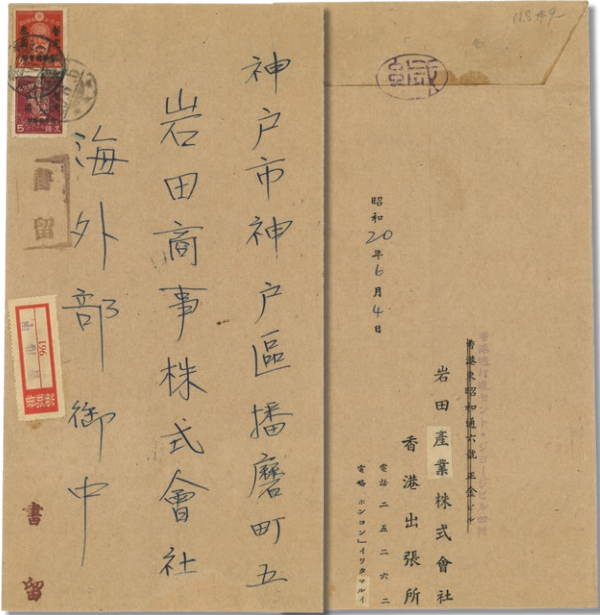 神戸市神戸區播磨町五
岩田商事株式會社
海外部御中
書留
書留
196
5
緘
昭和20年6月4日
香港東昭和通六號正金ビル
岩田產業株式會社
香港出張所
電話 二五二六二
電略 ホンコン「イワタマルイ